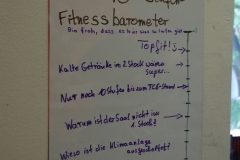 Fitnessbarometer
Bin froh, dass es hier was zu tun gibt
Topfit!s
Kalte Getränke im 2. Stock wären
super...
Nur noch 10 Stufen bis zum TCG-Stand
Warum ist der Saal nicht im
1. Stock?
Wieso ist die Klimaanlage
ausgeschaltet?